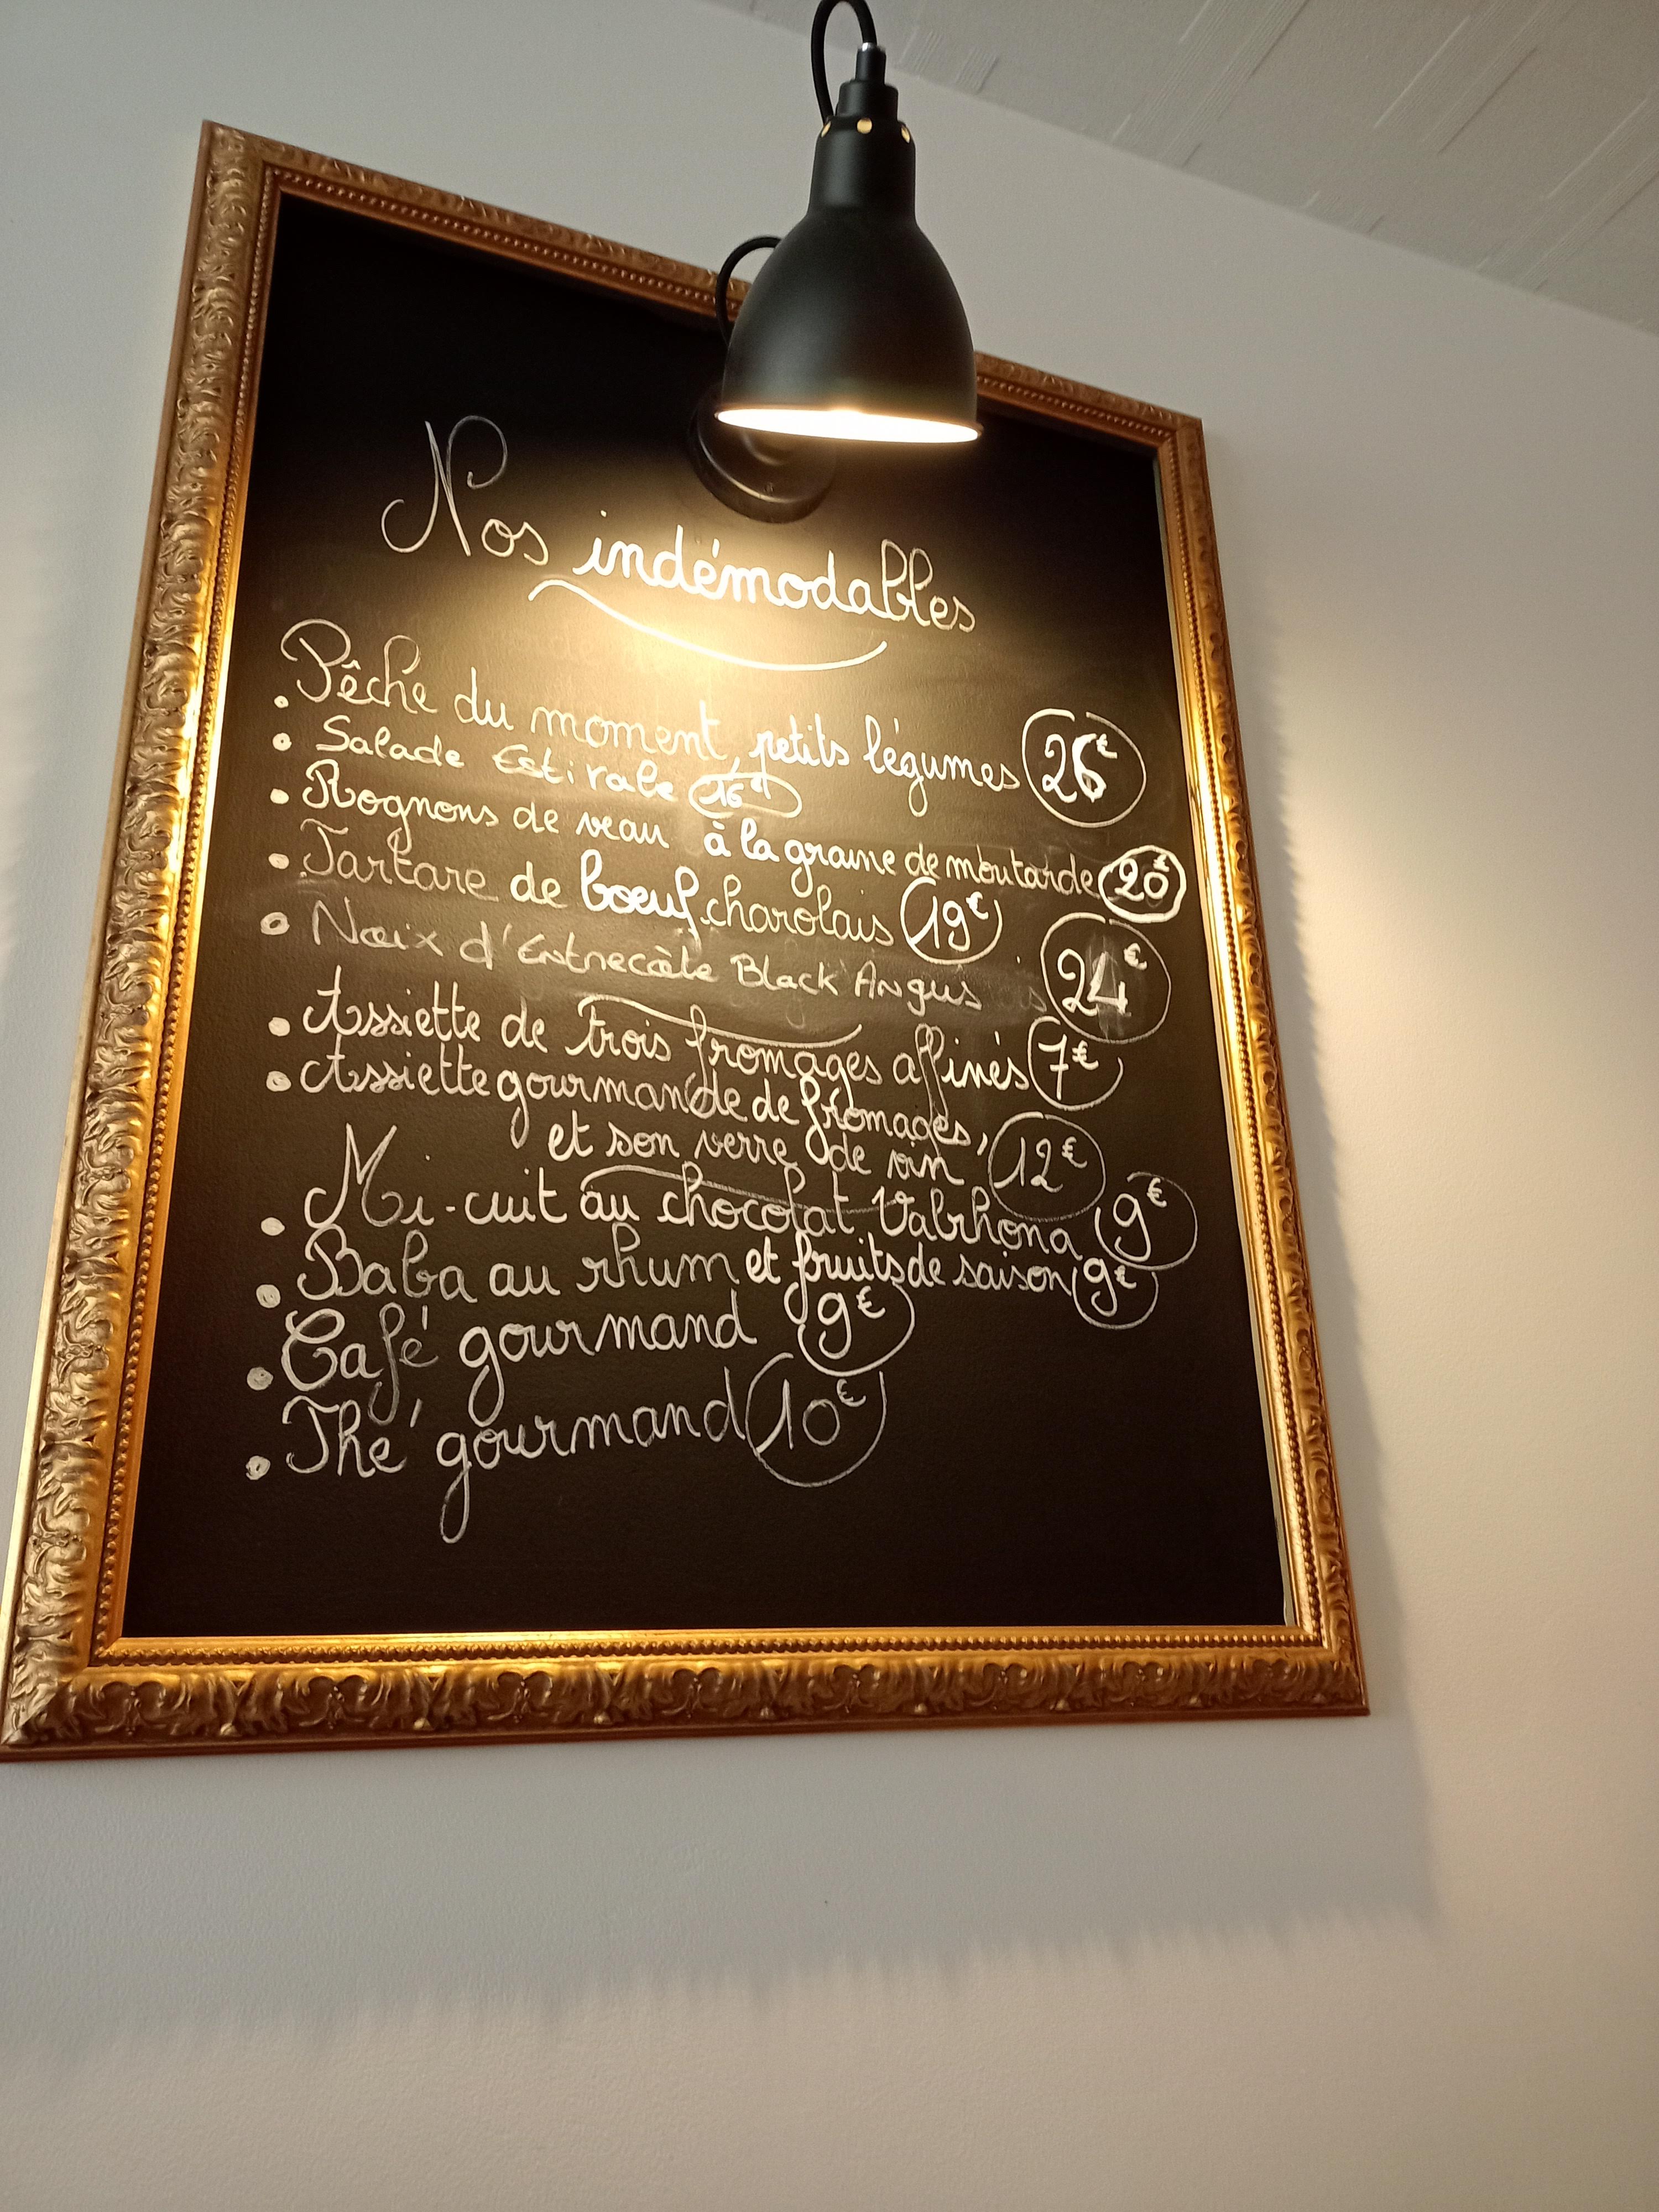 Nos indémodables
. Pêche du moment, petits légumes 26€
. Salade Estivale 16€
. Rognons de veau à la graine de moutarde 20€
. Tartare de boeuf charolais 19€
. Noix d'Entrecôte Black Angus 24€
. Assiette de trois fromages affinés 7€
. Assiette gourmande de fromages,
et son verre de vin 12€
. Mi-cuit au chocolat Valrhona 9€
. Baba au rhum et fruits de saison 9€
. Café gourmand 9€
. Thé gourmand 10€